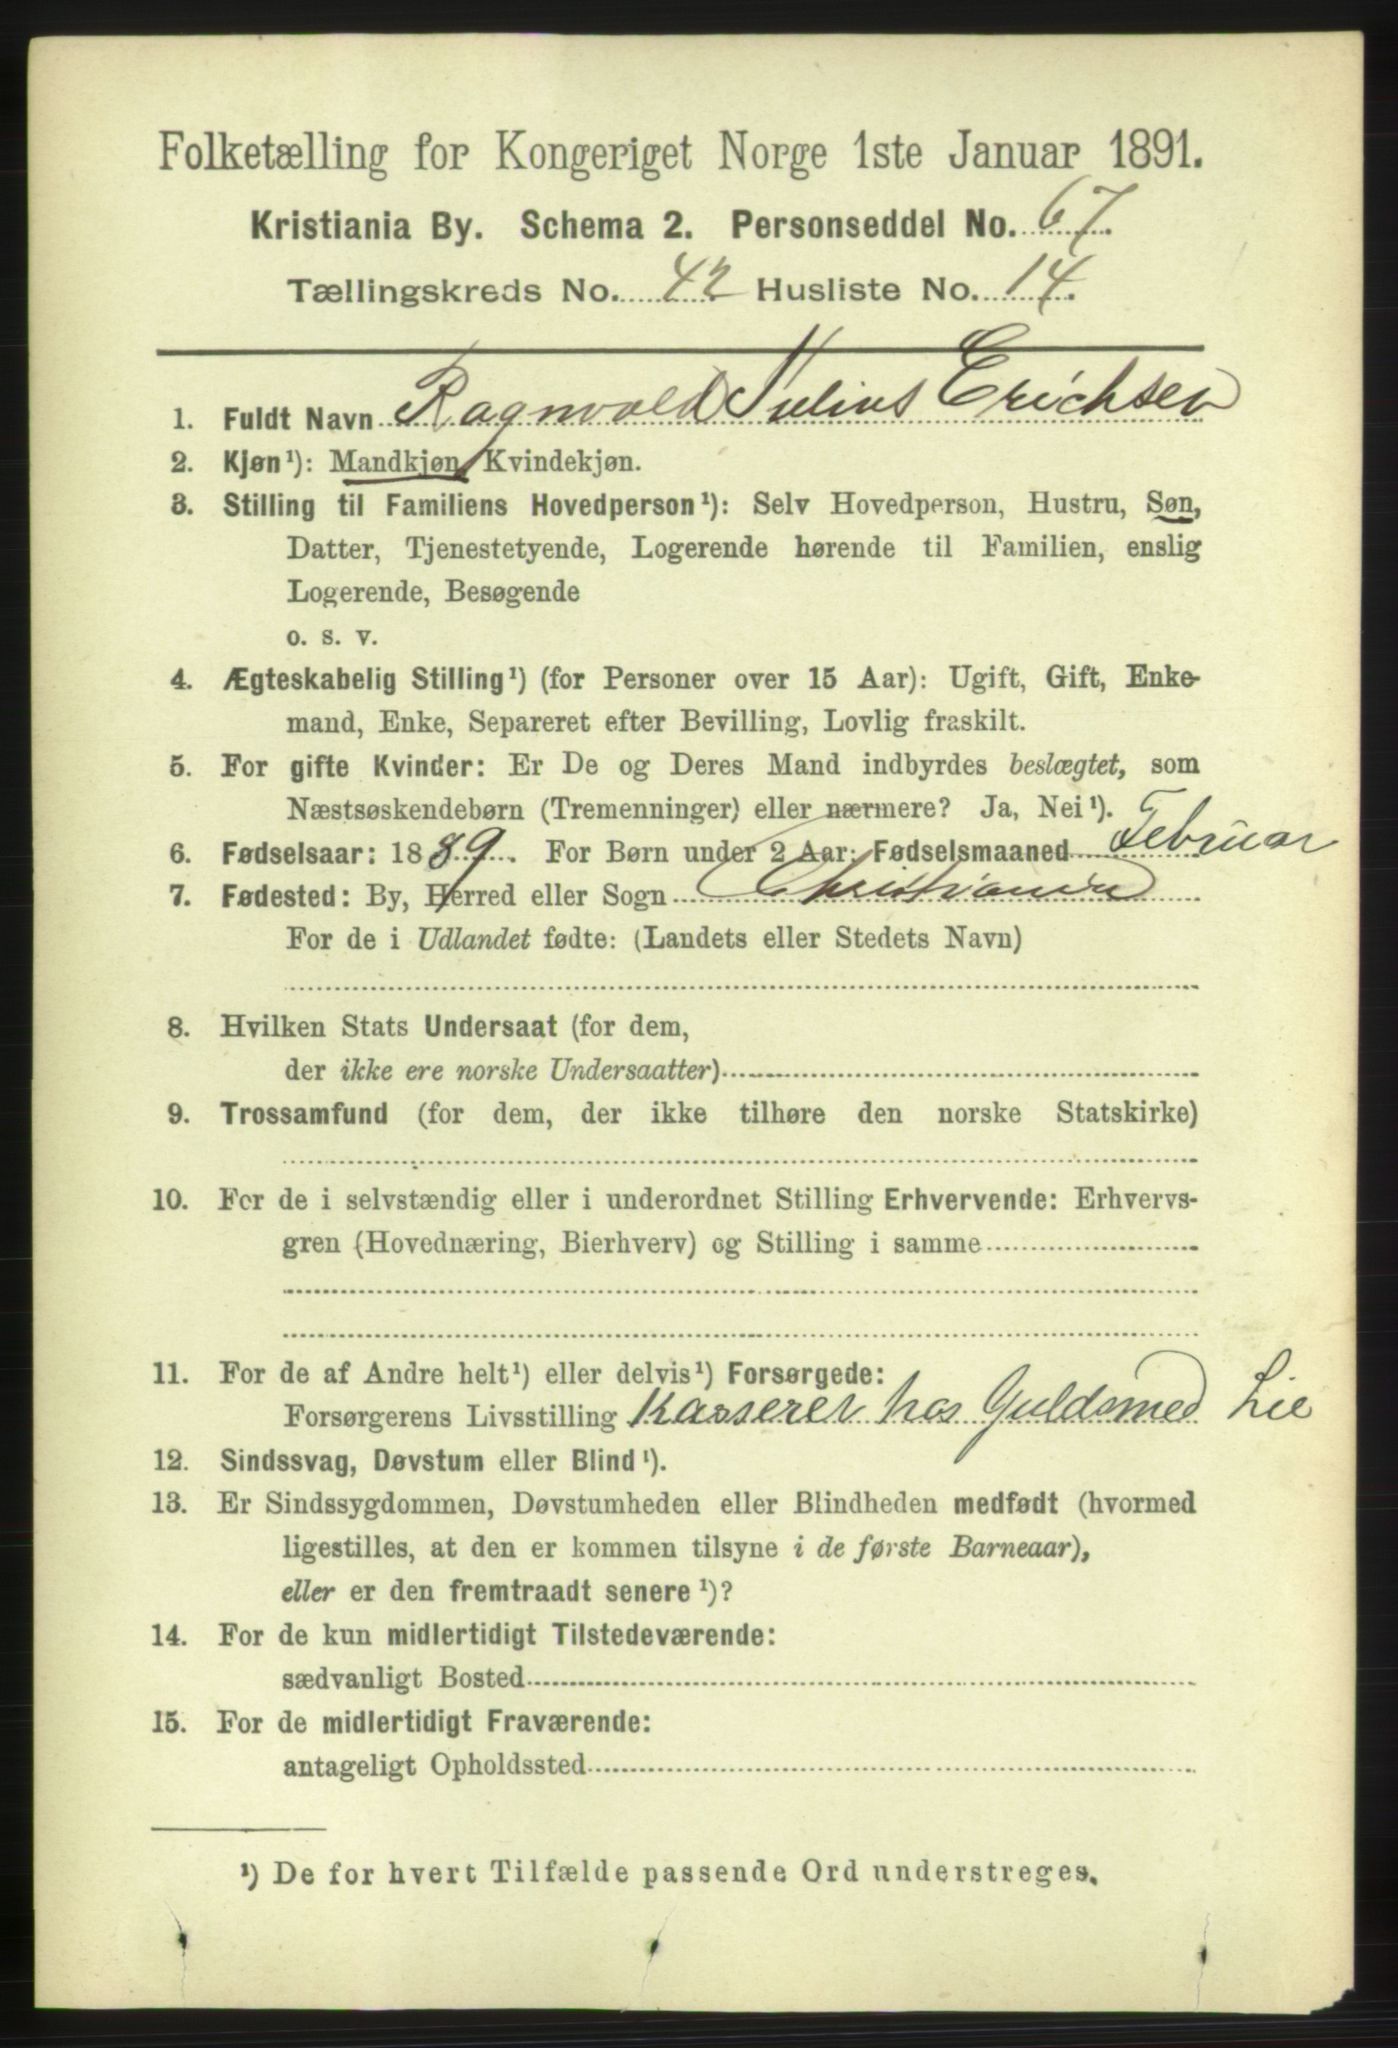 Folketælling for Kongeriget Norge 1ste Januar 1891.
Kristiania By. Schema 2. Personseddel No. 67.
Tællingskreds No. 42 Husliste No. 14.
1. Fuldt Navn Ragnvald Julius Erichsen
2. Kjøn¹): Mandkjøn, Kvindekjøn.
3. Stilling til Familiens Hovedperson¹): Selv Hovedperson, Hustru, Søn,
Datter, Tjenestetyende, Logerende hørende til Familien, enslig
Logerende, Besøgende
o. s. v.
4. Ægteskabelig Stilling¹) (for Personer over 15 Aar): Ugift, Gift, Enke-
mand, Enke, Separeret efter Bevilling, Lovlig fraskilt.
5. For gifte Kvinder: Er De og Deres Mand indbyrdes beslægtet, som
Næstsøskendebørn (Tremenninger) eller nærmere? Ja, Nei¹).
6. Fødselsaar: 1889. For Børn under 2 Aar: Fødselsmaaned Februar
7. Fødested: By, Herred eller Sogn Christiania
For de i Udlandet fødte: (Landets eller Stedets Navn)
8. Hvilken Stats Undersaat (for dem,
der ikke ere norske Undersaatter)
9. Trossamfund (for dem, der ikke tilhøre den norske Statskirke)
10. For de i selvstændig eller i underordnet Stilling Erhvervende: Erhvervs-
gren (Hovednæring, Bierhverv) og Stilling i samme
11. For de af Andre helt¹) eller delvis¹) Forsørgede:
Forsørgerens Livsstilling Kasserer hos Guldsmed Lie
12. Sindssvag, Døvstum eller Blind¹).
13. Er Sindssygdommen, Døvstumheden eller Blindheden medfødt (hvormed
ligestilles, at den er kommen tilsyne i de første Barneaar),
eller er den fremtraadt senere¹)?
14. For de kun midlertidigt Tilstedeværende:
sædvanligt Bosted
15. For de midlertidigt Fraværende:
antageligt Opholdssted
¹) De for hvert Tilfælde passende Ord understreges.